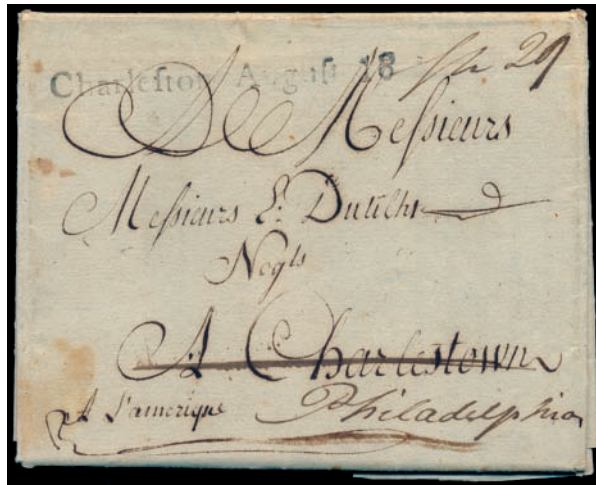 Charleston August 18
29
A Messieurs
Messieurs E: Dutilhs
Nogts
A Charlestown
A L'amerique Philadelphia